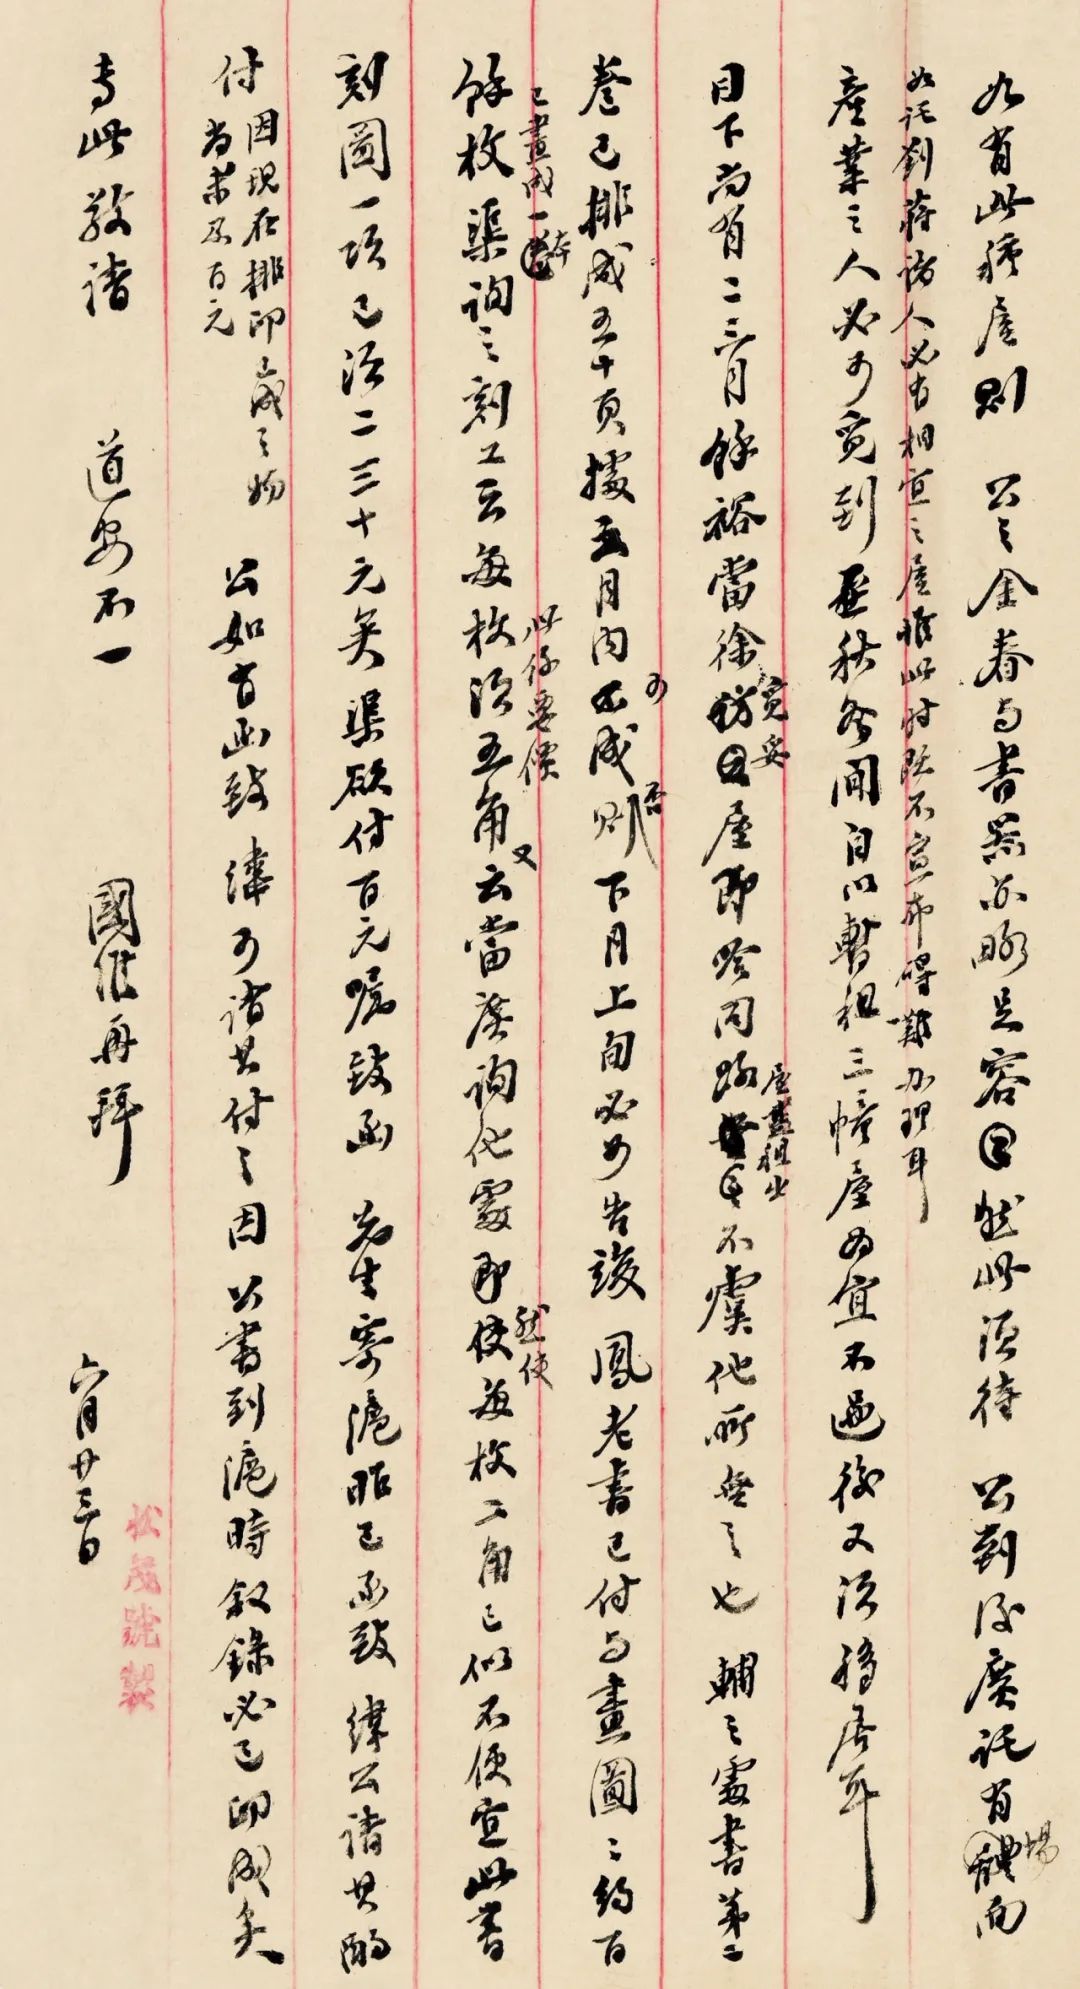 如有此種屋則　公之全眷與書器亦略足容　然此須待　公到後廣託有場面
如託劉蔣諸人必有相宜之屋惟此時既不宣布礙難辦理耳
產業之人必可覓到　至秋冬間自以暫租三幢屋為宜不過後又須移居耳
目下尚有二三月餘裕當徐　屋即　同　不虞他所無之也　輔之處書第二
覓妥
屋盡租出
卷已排成五十頁據云月內可成否則下月上旬必可告竣　鳳老書已付與畫圖圖約百
已畫成一本
餘枚渠詢之刻工云每枚須五角又云當廣詢他處即使每枚二角已似不便宜此書
此係要價
然使
刻圖一項已須二三十元矣渠欲付百元囑致函　先生寄滬昨已函致　緯公請其酌
付因現在排印成之物
尚未及百元
公如有函致　緯可請其付之因　公書到滬時敘錄必已印成矣
專此敬請　道安不一　國維再拜　六月廿三日
松茂號製